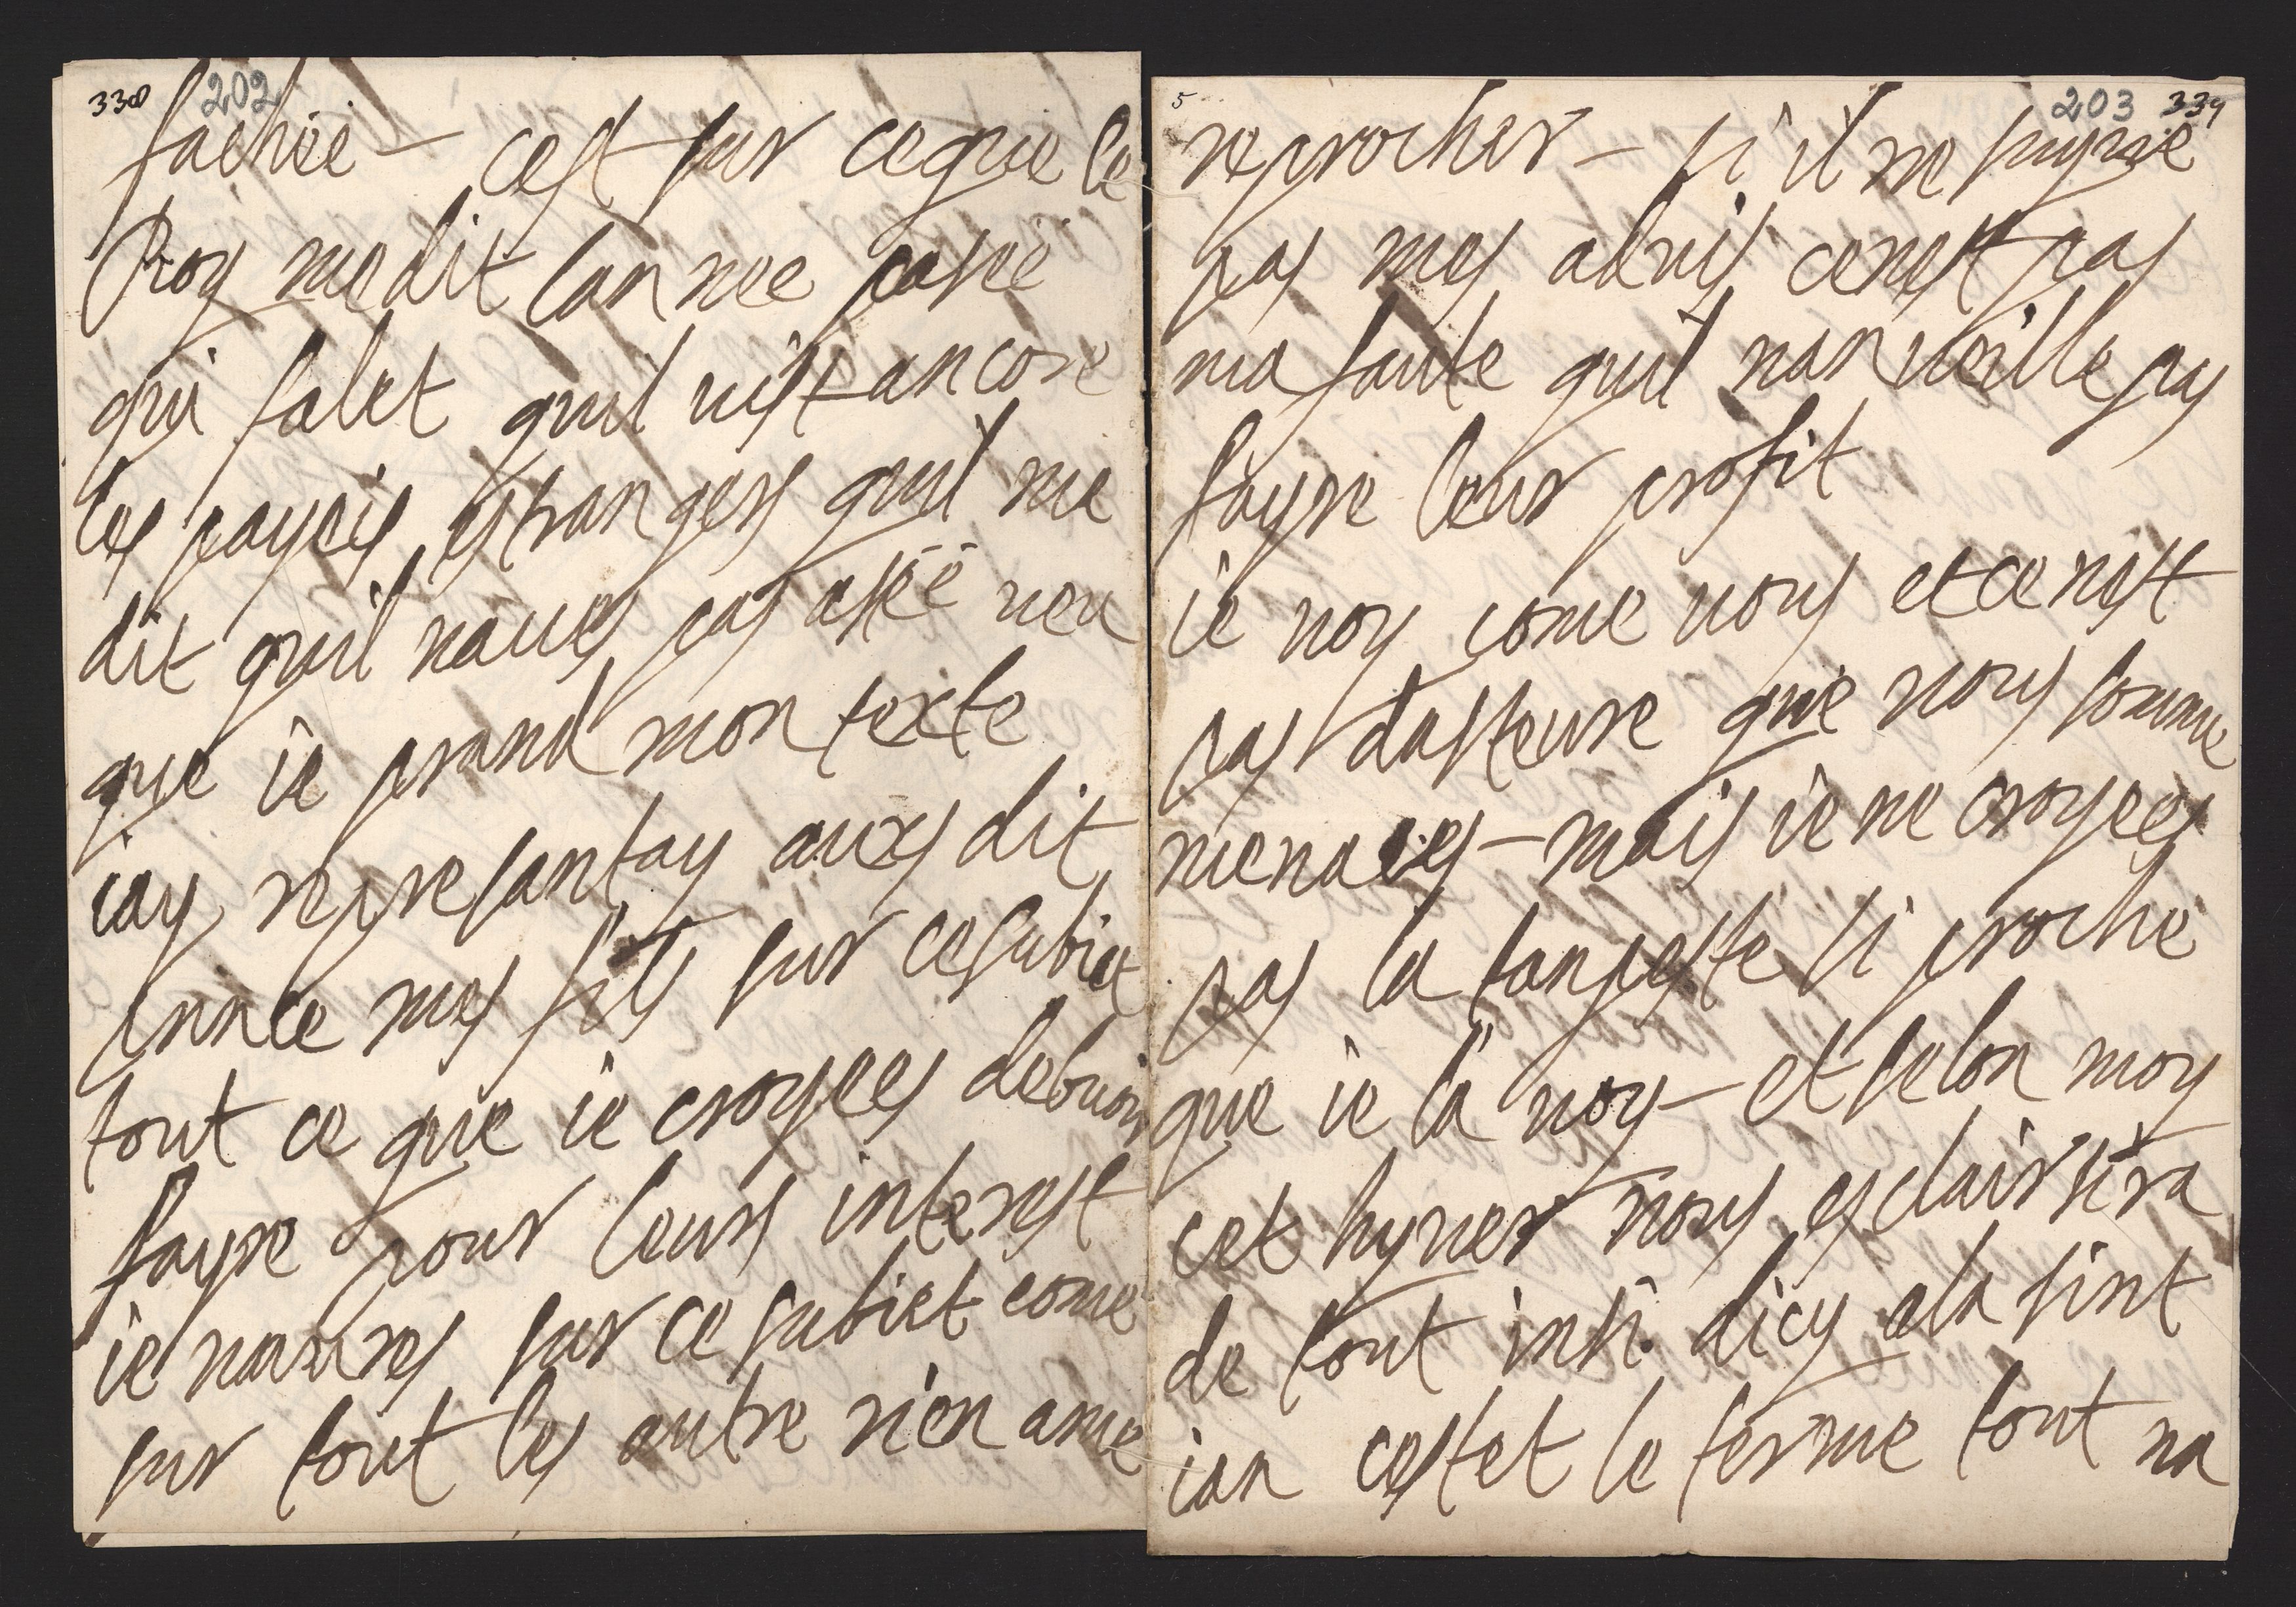 338 202
fachéé – cest sur ceque le
Roy me dit lan nee passé
qui falet quil vist ancore
les payeis estrangers quil me
dit quil naves pas assëë veu
que ie prand mon texte
iay represantay auxs dit
prince mes fits sur ce subiet
tout ce que ie croyees debuoir
fayre pour leurs interest
ie naures sur ce subiet come
sur tout les autre rien a me
5 203 339
reprocher – si il ne suyve
pas mes advis cenest pas
ma faute quil nan veille pas
fayre leur profit
ie voy come vous et ce nest
pas dasteure que nous somme
menaces – mais ie ne croyees
pas la tanpeste si proche
que ie la voy – et selon moy
cet hyver nous esclairsira
de tout insi. dicy a la sint
ian cestet le terme tout na